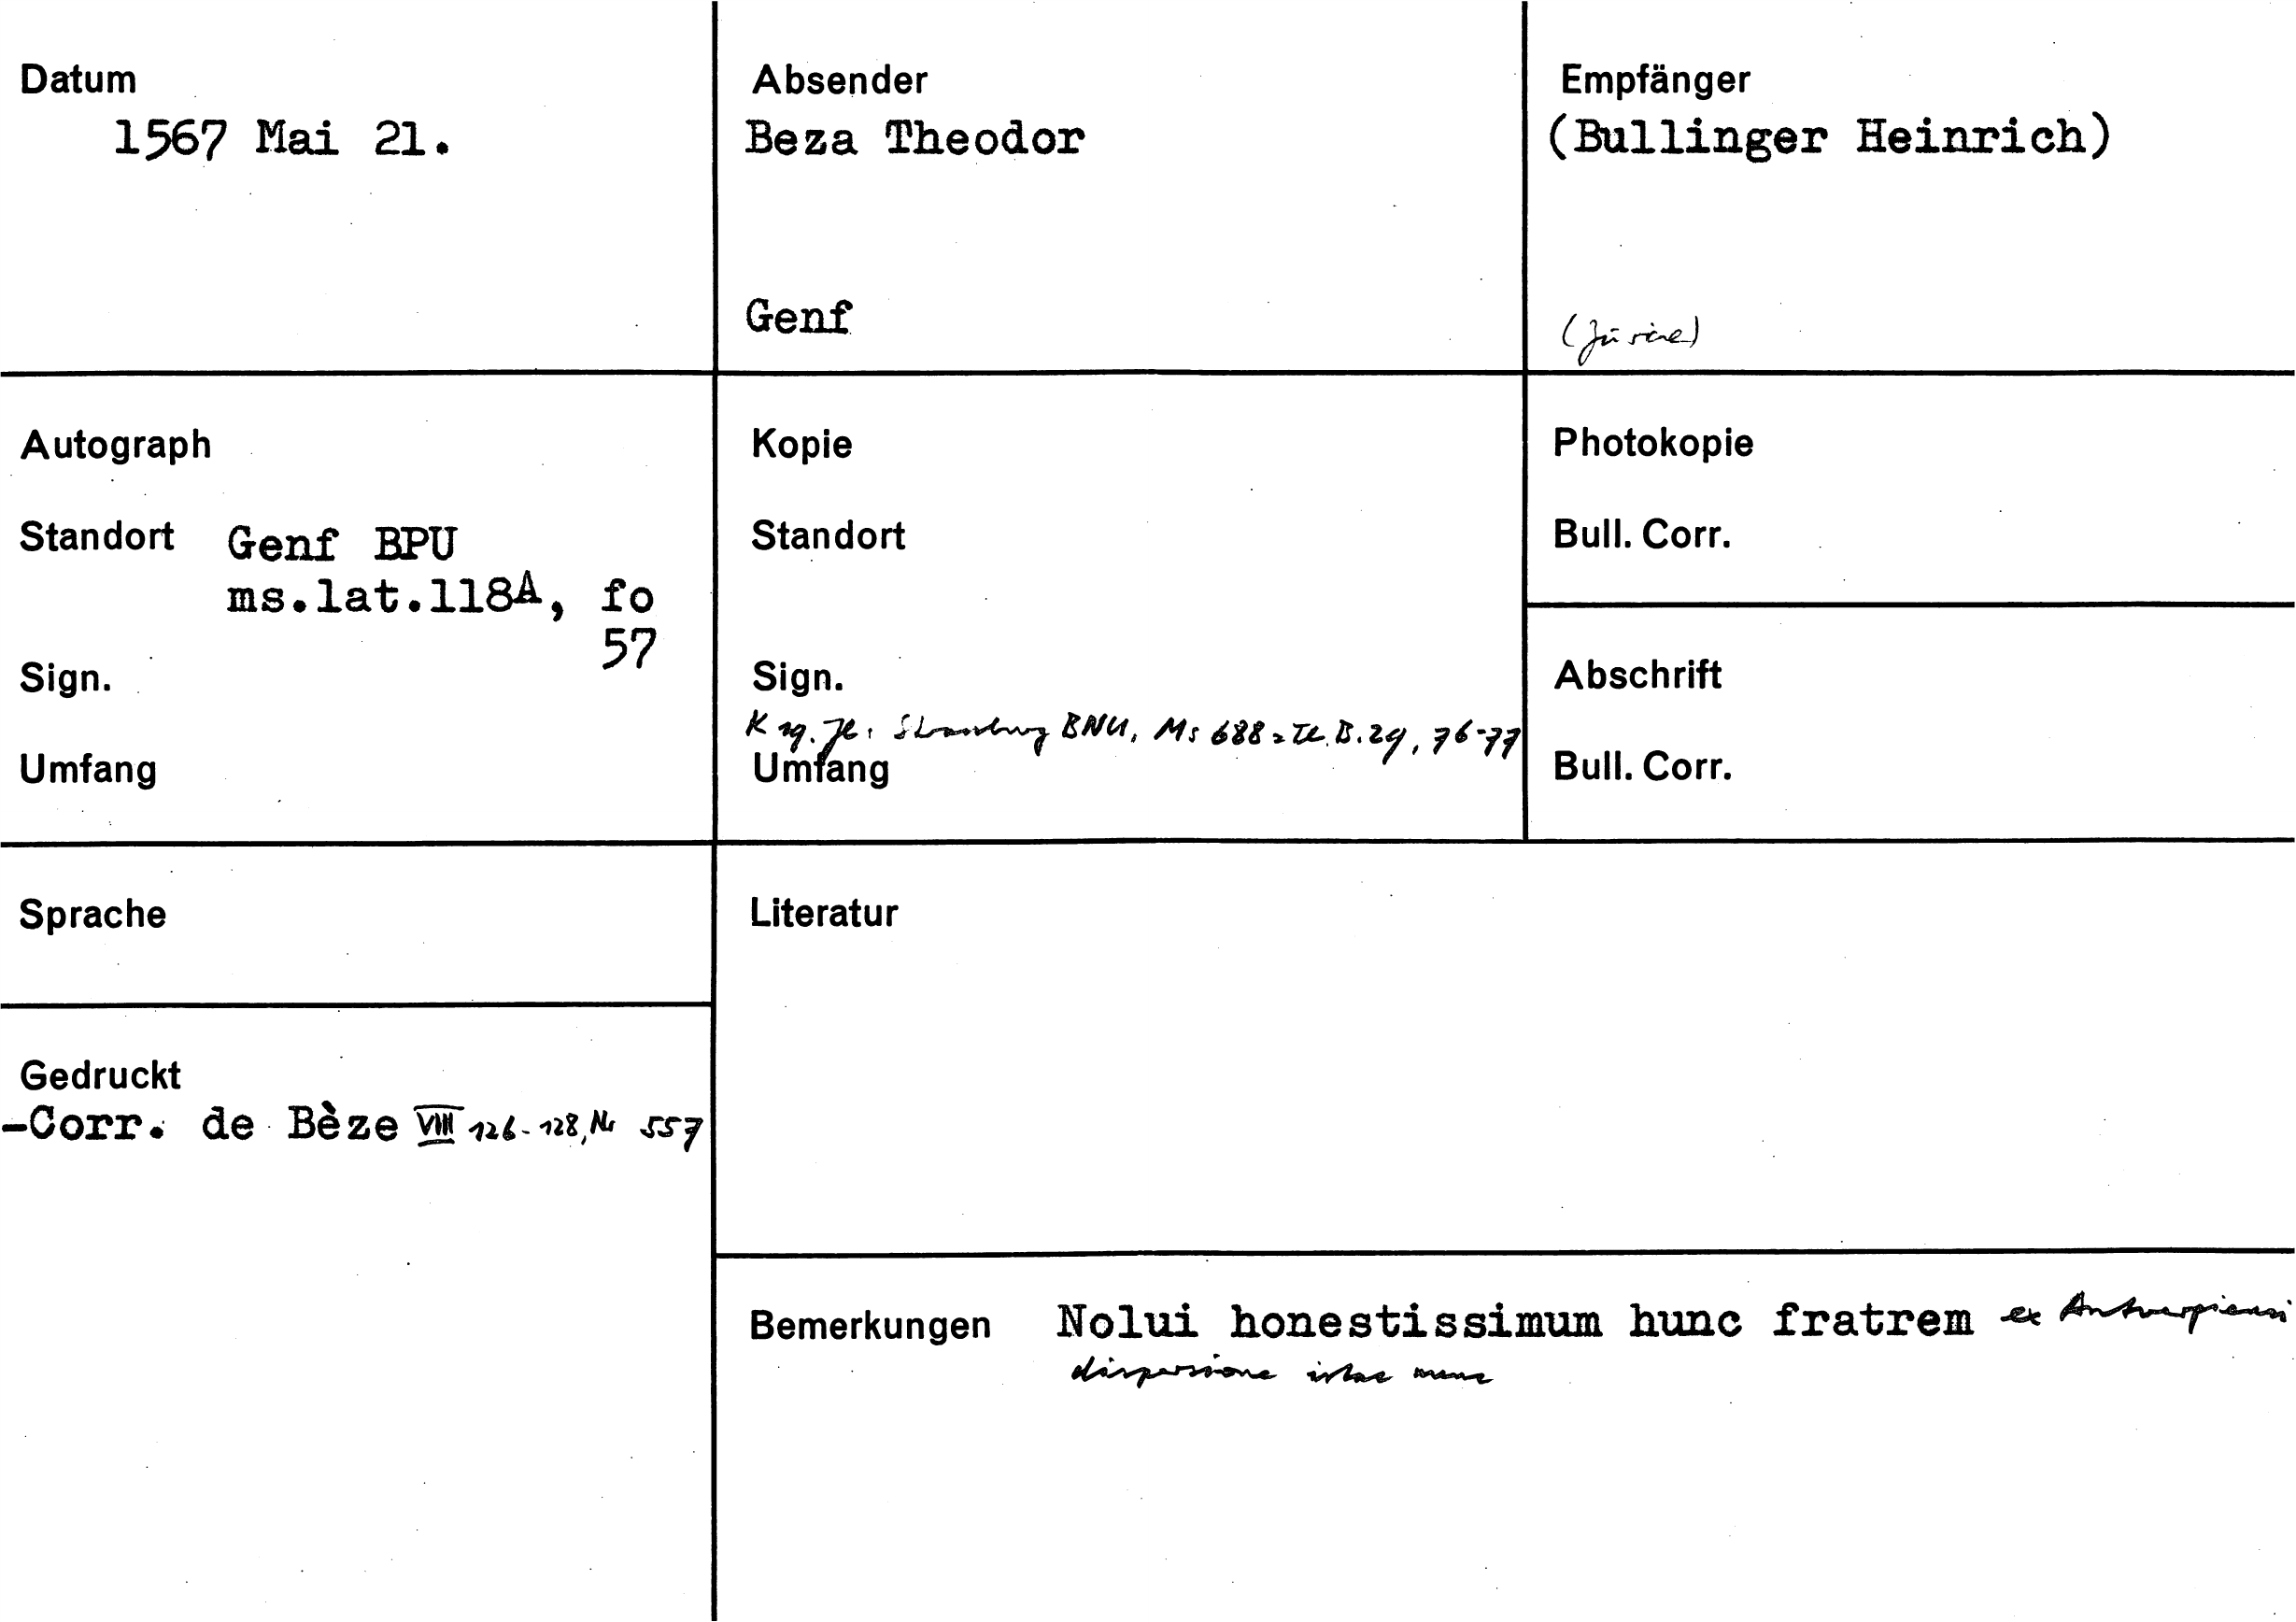 Datum
1567 Mai 21.
Absender
Beza Theodor
Genf
Empfänger
(Bullinger Heinrich)
(Zürich)
Autograph
Standort Genf BPU
ms.lat.118A, fo
57
Sign.
Umfang
Kopie
Standort
Sign.
Strassburg BNU, Ms 688 = Th. B. 29, 76-77
Umfang
Photokopie
Bull. Corr.
Abschrift
Bull. Corr.
Sprache
Gedruckt
-Corr. de Bèze VIII 126-128, Nr 557
Literatur
Bemerkungen Nolui honestissimum hunc fratrem ex Antwerpiensi
dispersione istac nunc